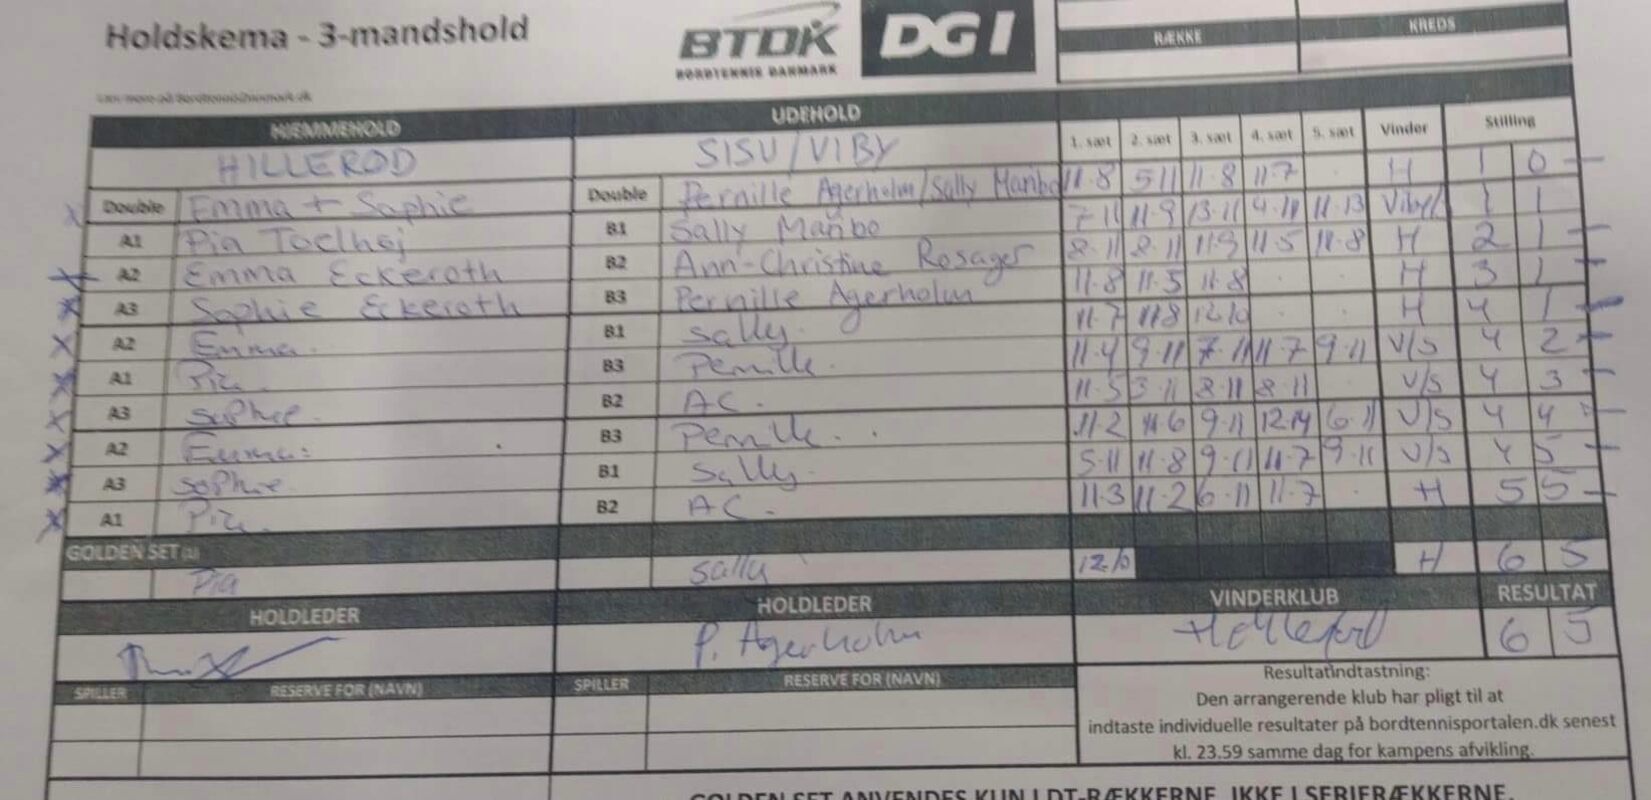 Holdskema - 3-mandshold
BTDK
BORDTENNIS DANMARK
DGI
RÆKKE KREDS
HJEMMEHOLD UDEHOLD 1. sæt 2. sæt 3. sæt 4. sæt 5. sæt Vinder Stilling
HILLERØD SISU/VIBY
Double Emma + Sophie Double Pernille Agerholm/Sally Maribo 11-8 5-11 11-8 11-7 H 1 0
A1 Pia Toelhøj B1 Sally Maribo 7-11 11-9 13-11 4-11 11-13 Viby/ 1 1
A2 Emma Eckeroth B2 Ann-Christine Rosager 8-11 8-11 11-9 11-5 11-8 H 2 1
A3 Sophie Eckeroth B3 Pernille Agerholm 11-8 11-5 11-8 H 3 1
A2 Emma B1 Sally 11-7 11-8 12-10 H 4 1
A1 Pia B3 Pernille 11-4 9-11 7-11 11-7 9-11 V/S 4 2
A3 Sophie B2 AC. 11-5 3-11 8-11 8-11 V/S 4 3
A2 Emma B3 Pernille 11-2 11-6 9-11 12-14 6-11 V/S 4 4
A3 Sophie B1 Sally 5-11 11-8 9-11 11-7 9-11 V/S 4 5
A1 Pia B2 AC. 11-3 11-2 6-11 11-7 H 5 5
GOLDEN SET
Pia Sally 12-10 H 6 5
HOLDLEDER HOLDLEDER VINDERKLUB RESULTAT
P. Agerholm Hillerød 6 5
SPILLER RESERVE FOR (NAVN) SPILLER RESERVE FOR (NAVN) Resultatindtastning:
Den arrangerende klub har pligt til at
indtaste individuelle resultater på bordtennisportalen.dk senest
kl. 23.59 samme dag for kampens afvikling.
GOLDEN SET ANVENDES KUN I DT-RÆKKERNE, IKKE I SERIERÆKKERNE.